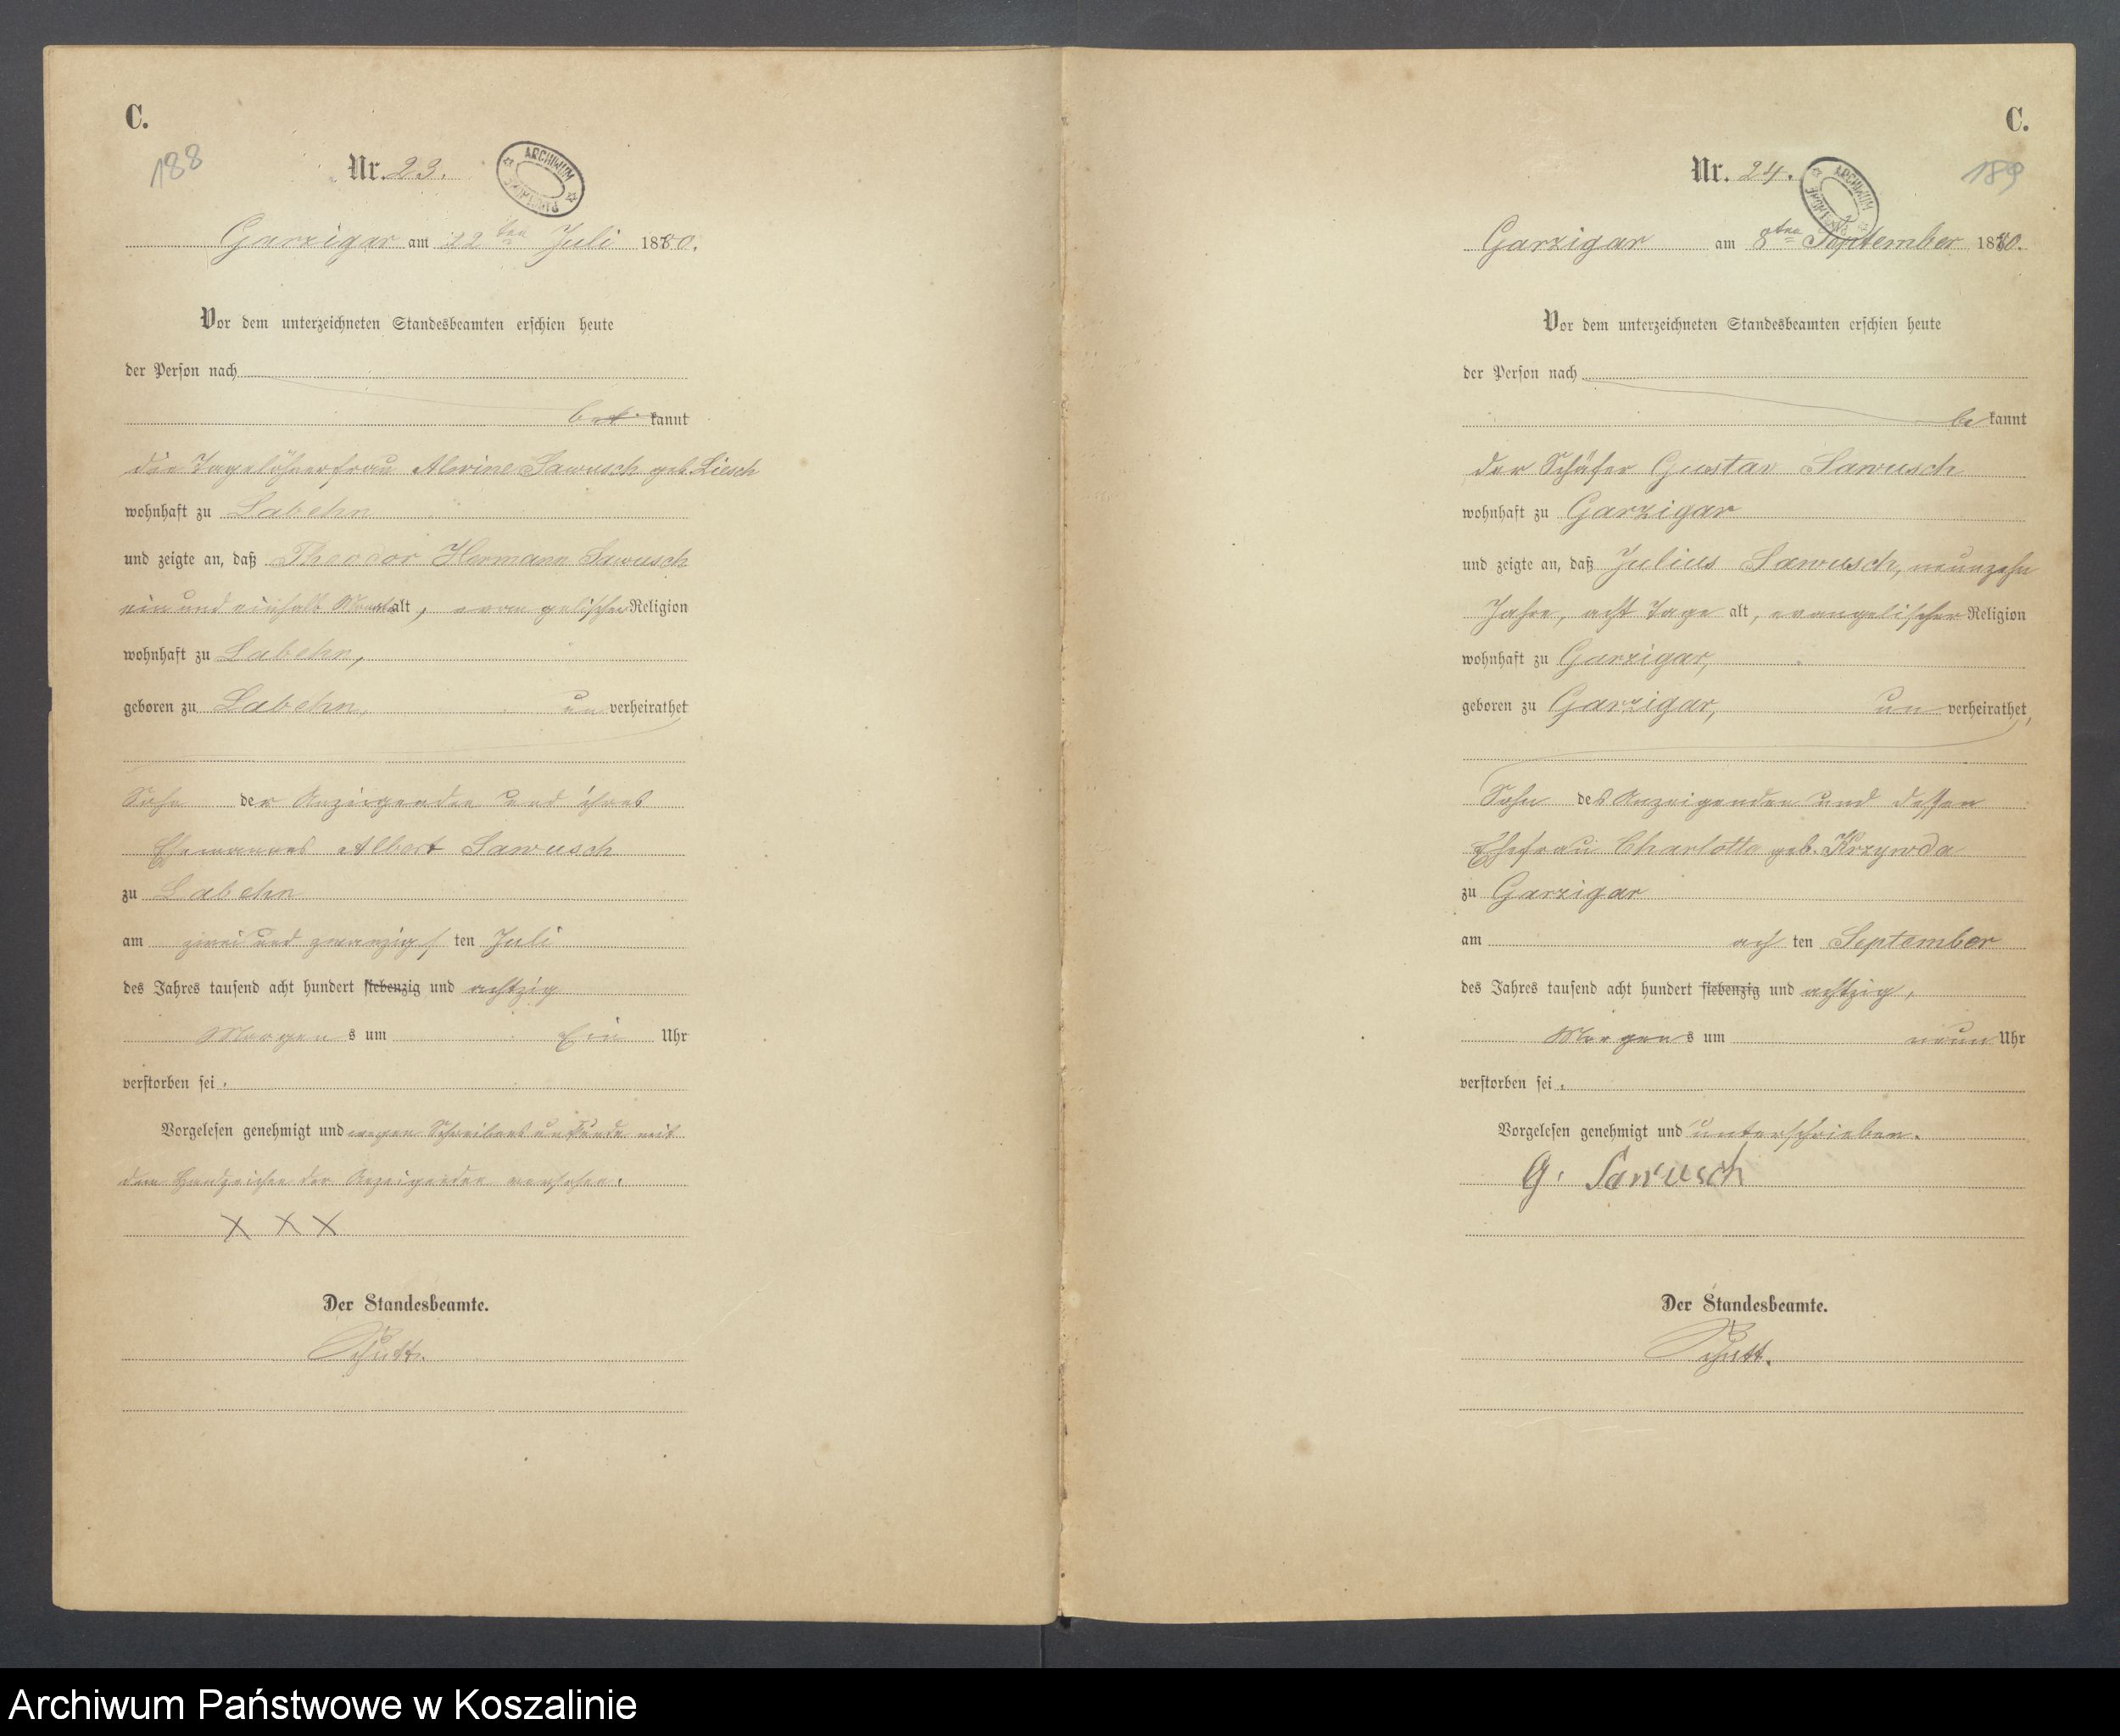 C.
188
Nr. 23.
ARCHIWUM
Garzigar am 22ten Juli 1880.
Vor dem unterzeichneten Standesbeamten erschien heute
der Person nach
bekannt
die Tagelöhnerfrau Alwine Sawusch geb. Liesch
wohnhaft zu Labehn
und zeigte an, daß Theodor Hermann Sawusch
ein und einhalb Monat alt, evangelischer Religion
wohnhaft zu Labehn,
geboren zu Labehn, unverheirathet
Sohn der Anzeigenden und ihres
Ehemannes Albert Sawusch
zu Labehn
am zwei und zwanzigsten Juli
des Jahres tausend acht hundert siebenzig und achtzig
Morgens um Ein Uhr
verstorben sei.
Vorgelesen genehmigt und wegen Schreibensunkunde mit
dem Handzeichen der Anzeigenden versehen.
X X X
Der Standesbeamte.
Schutt.
C.
189
Nr. 24.
ARCHIWUM
Garzigar am 8ten September 1880.
Vor dem unterzeichneten Standesbeamten erschien heute
der Person nach
bekannt
der Schäfer Gustav Sawusch
wohnhaft zu Garzigar
und zeigte an, daß Julius Sawusch, neunzehn
Jahre, acht Tage alt, evangelischer Religion
wohnhaft zu Garzigar,
geboren zu Garzigar, unverheirathet,
Sohn des Anzeigenden und dessen
Ehefrau Charlotte geb. Krzywda
zu Garzigar
am achten September
des Jahres tausend acht hundert siebenzig und achtzig,
Morgens um neun Uhr
verstorben sei.
Vorgelesen genehmigt und unterschrieben.
G. Sawusch
Der Standesbeamte.
Schutt.
Archiwum Państwowe w Koszalinie